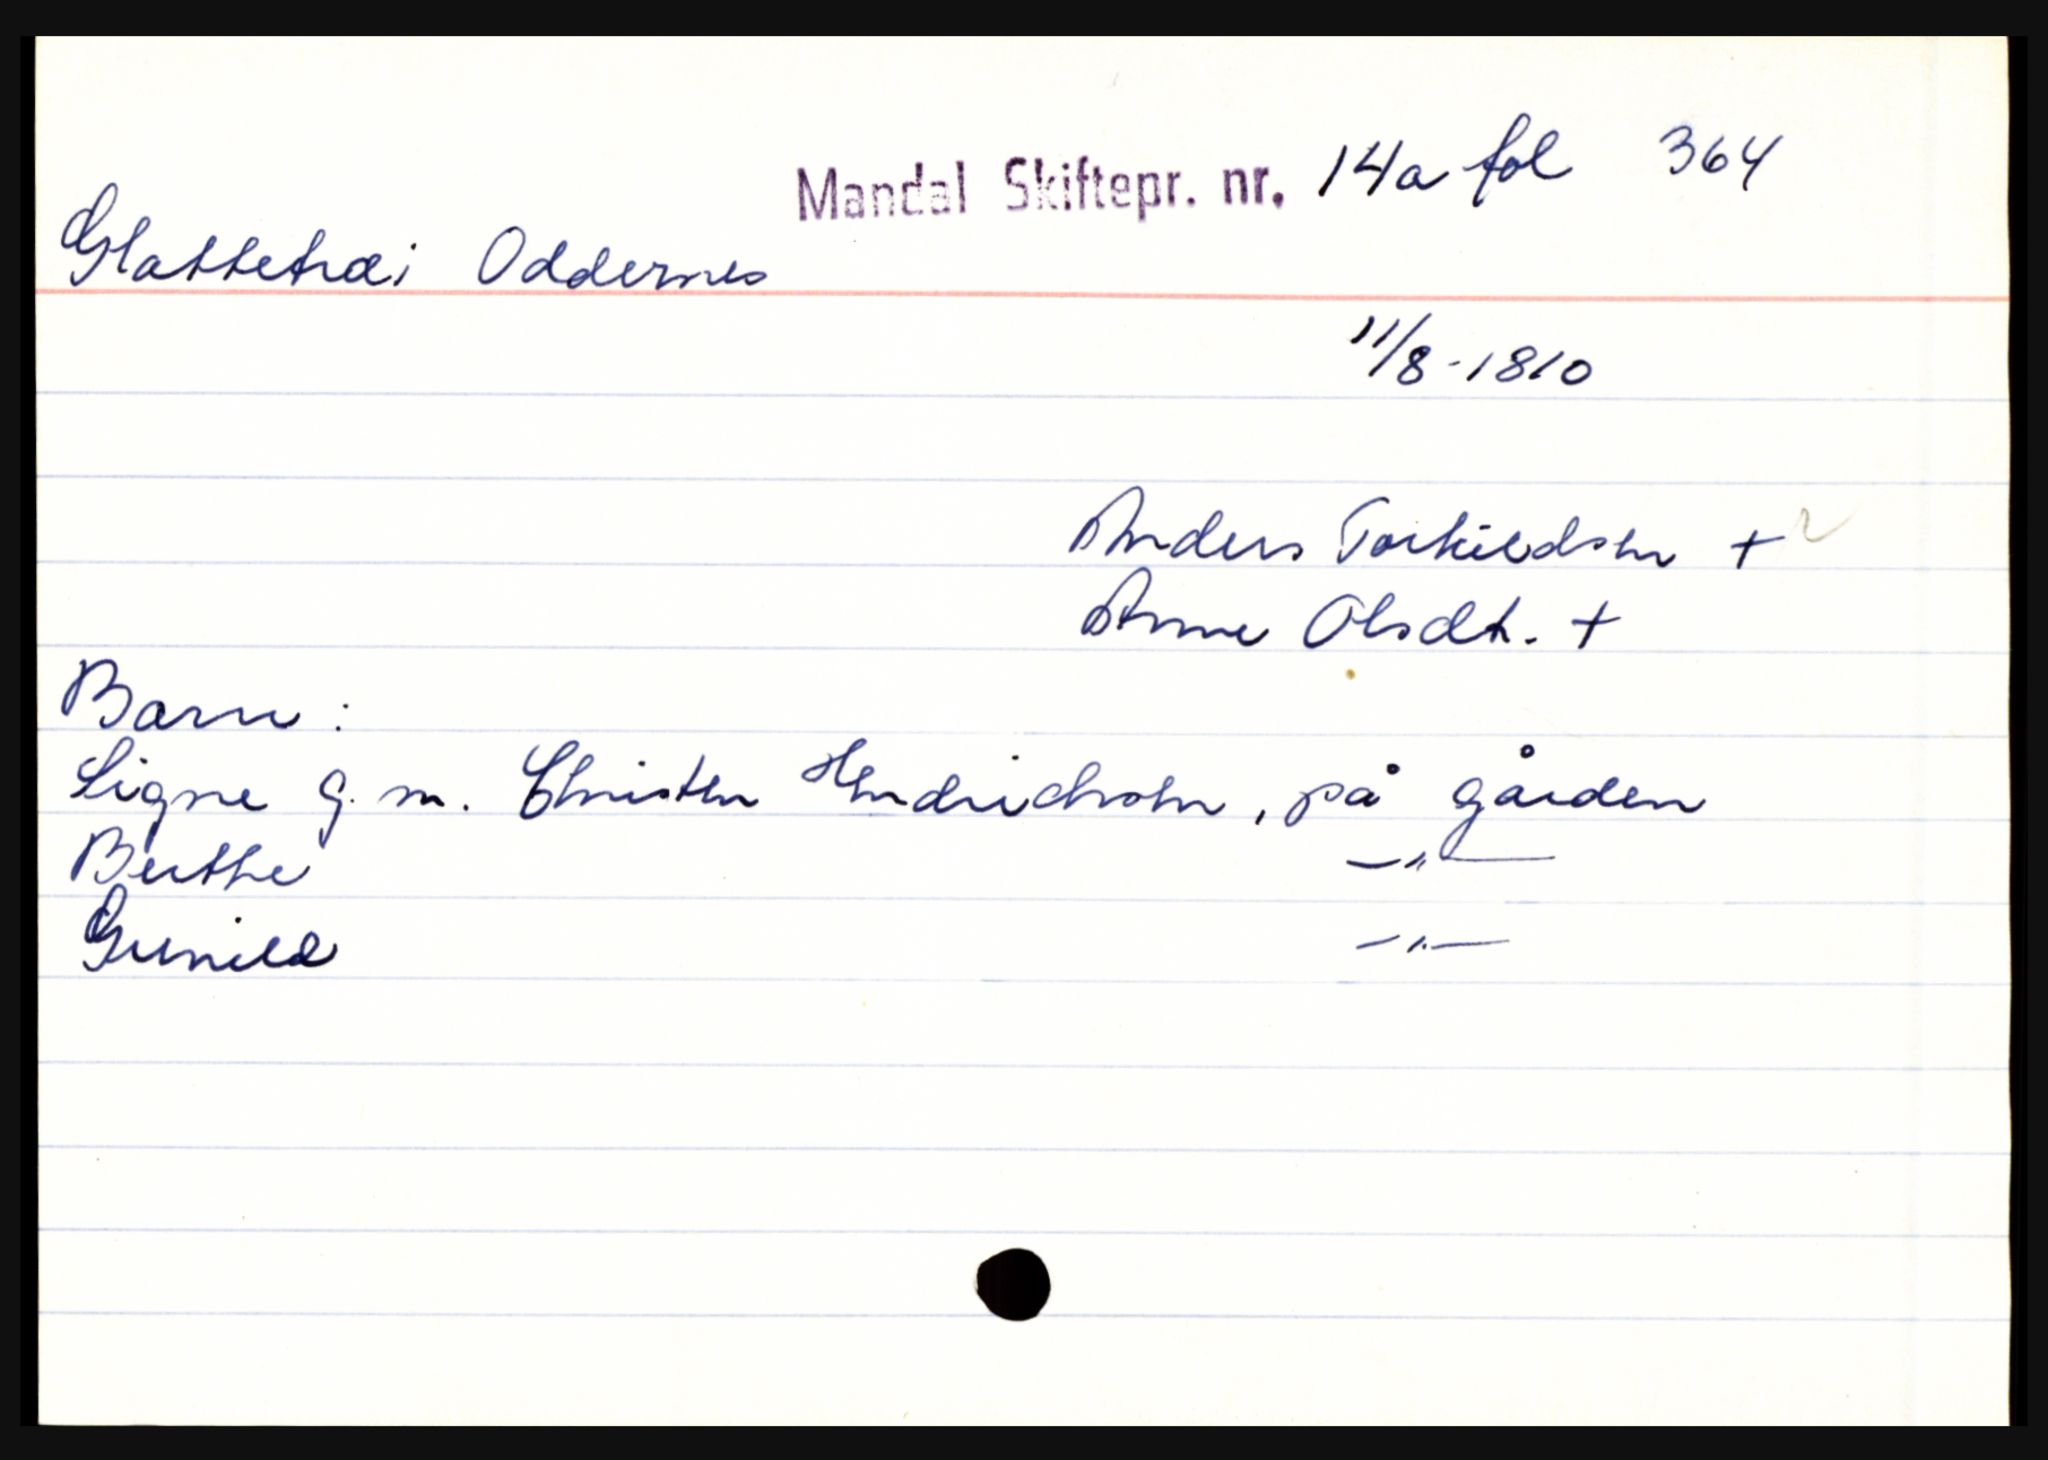 Mandal Skiftepr. nr. 14a fol 364
Glattetræ i Oddernes
11/8-1810
Anders Torkildsen +
Anne Olsdt. +
Barn :
Signe g. m. Christen Hendrichsen, på gården
Berthe —"—
Gunild —"—